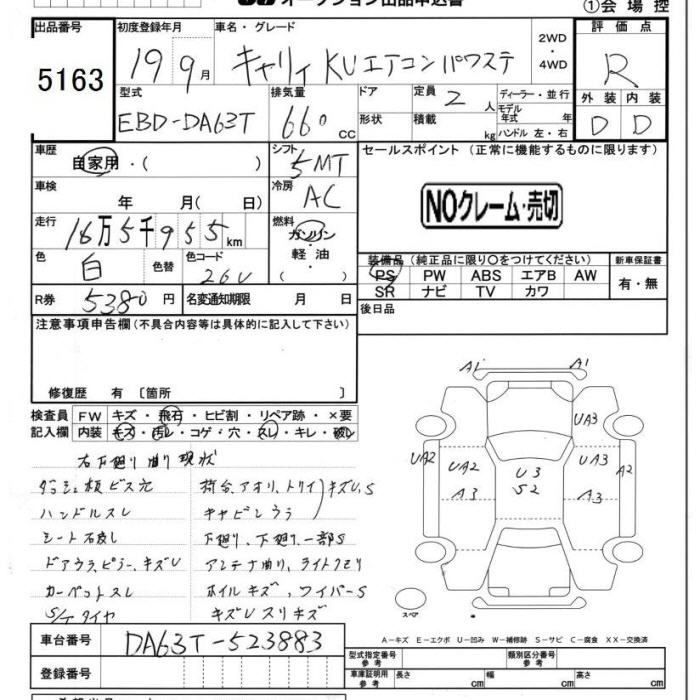 オークション出品申込書
①会場控
出品番号 初度登録年月 車名・グレード 評価点
5163 19 9月 キャリィ KUエアコンパワステ 2WD・4WD R
型式 排気量 ドア 定員 2人 ディーラー・並行 外装 内装
EBD-DA63T 660cc 形状 積載 kg モデル年式 年 ハンドル 左・右 D D
車歴 自家用・( ) シフト 5MT セールスポイント (正常に機能するものに限ります)
車検 年 月( 日) 冷房 AC
NOクレーム・売切
走行 16万5千955km 燃料 ガソリン・軽油
色 白 色替 色コード 26U
装備品 (純正品に限り○をつけてください) 新車保証書
PS PW ABS エアB AW 有・無
SR ナビ TV カワ
R券 5380円 名変通知期限 月 日
後日品
注意事項申告欄(不具合内容等は具体的に記入して下さい)
修復歴 有 [箇所 ]
検査員 FW キズ・飛石・ヒビ割・リペア跡・×要
記入欄 内装 キズ・汚レ・コゲ・穴・スレ・キレ・破レ
右下廻り曲り現状
ダッシュ板ビス穴 荷台、アオリ、トリイ キズU、S
ハンドルスレ キャビンウラ
シート 下廻り、下廻り一部S
ドアウラ、ピラー、キズU アンテナ曲り、ライトクモリ
カーペットスレ ホイルキズ、ワイパーS
S/Tタイヤ キズUスリキズ
A1 A1
UA3
UA2 UA2 U3 UA3 A2
A3 S2 A3
スペア
A-キズ E-エクボ U-凹み W-補修跡 S-サビ C-腐食 XX-交換済
車台番号 DA63T-523883
型式指定番号 参考 類別区分番号 参考
登録番号
車庫証明用 参考 長さ cm 幅 cm 高さ cm